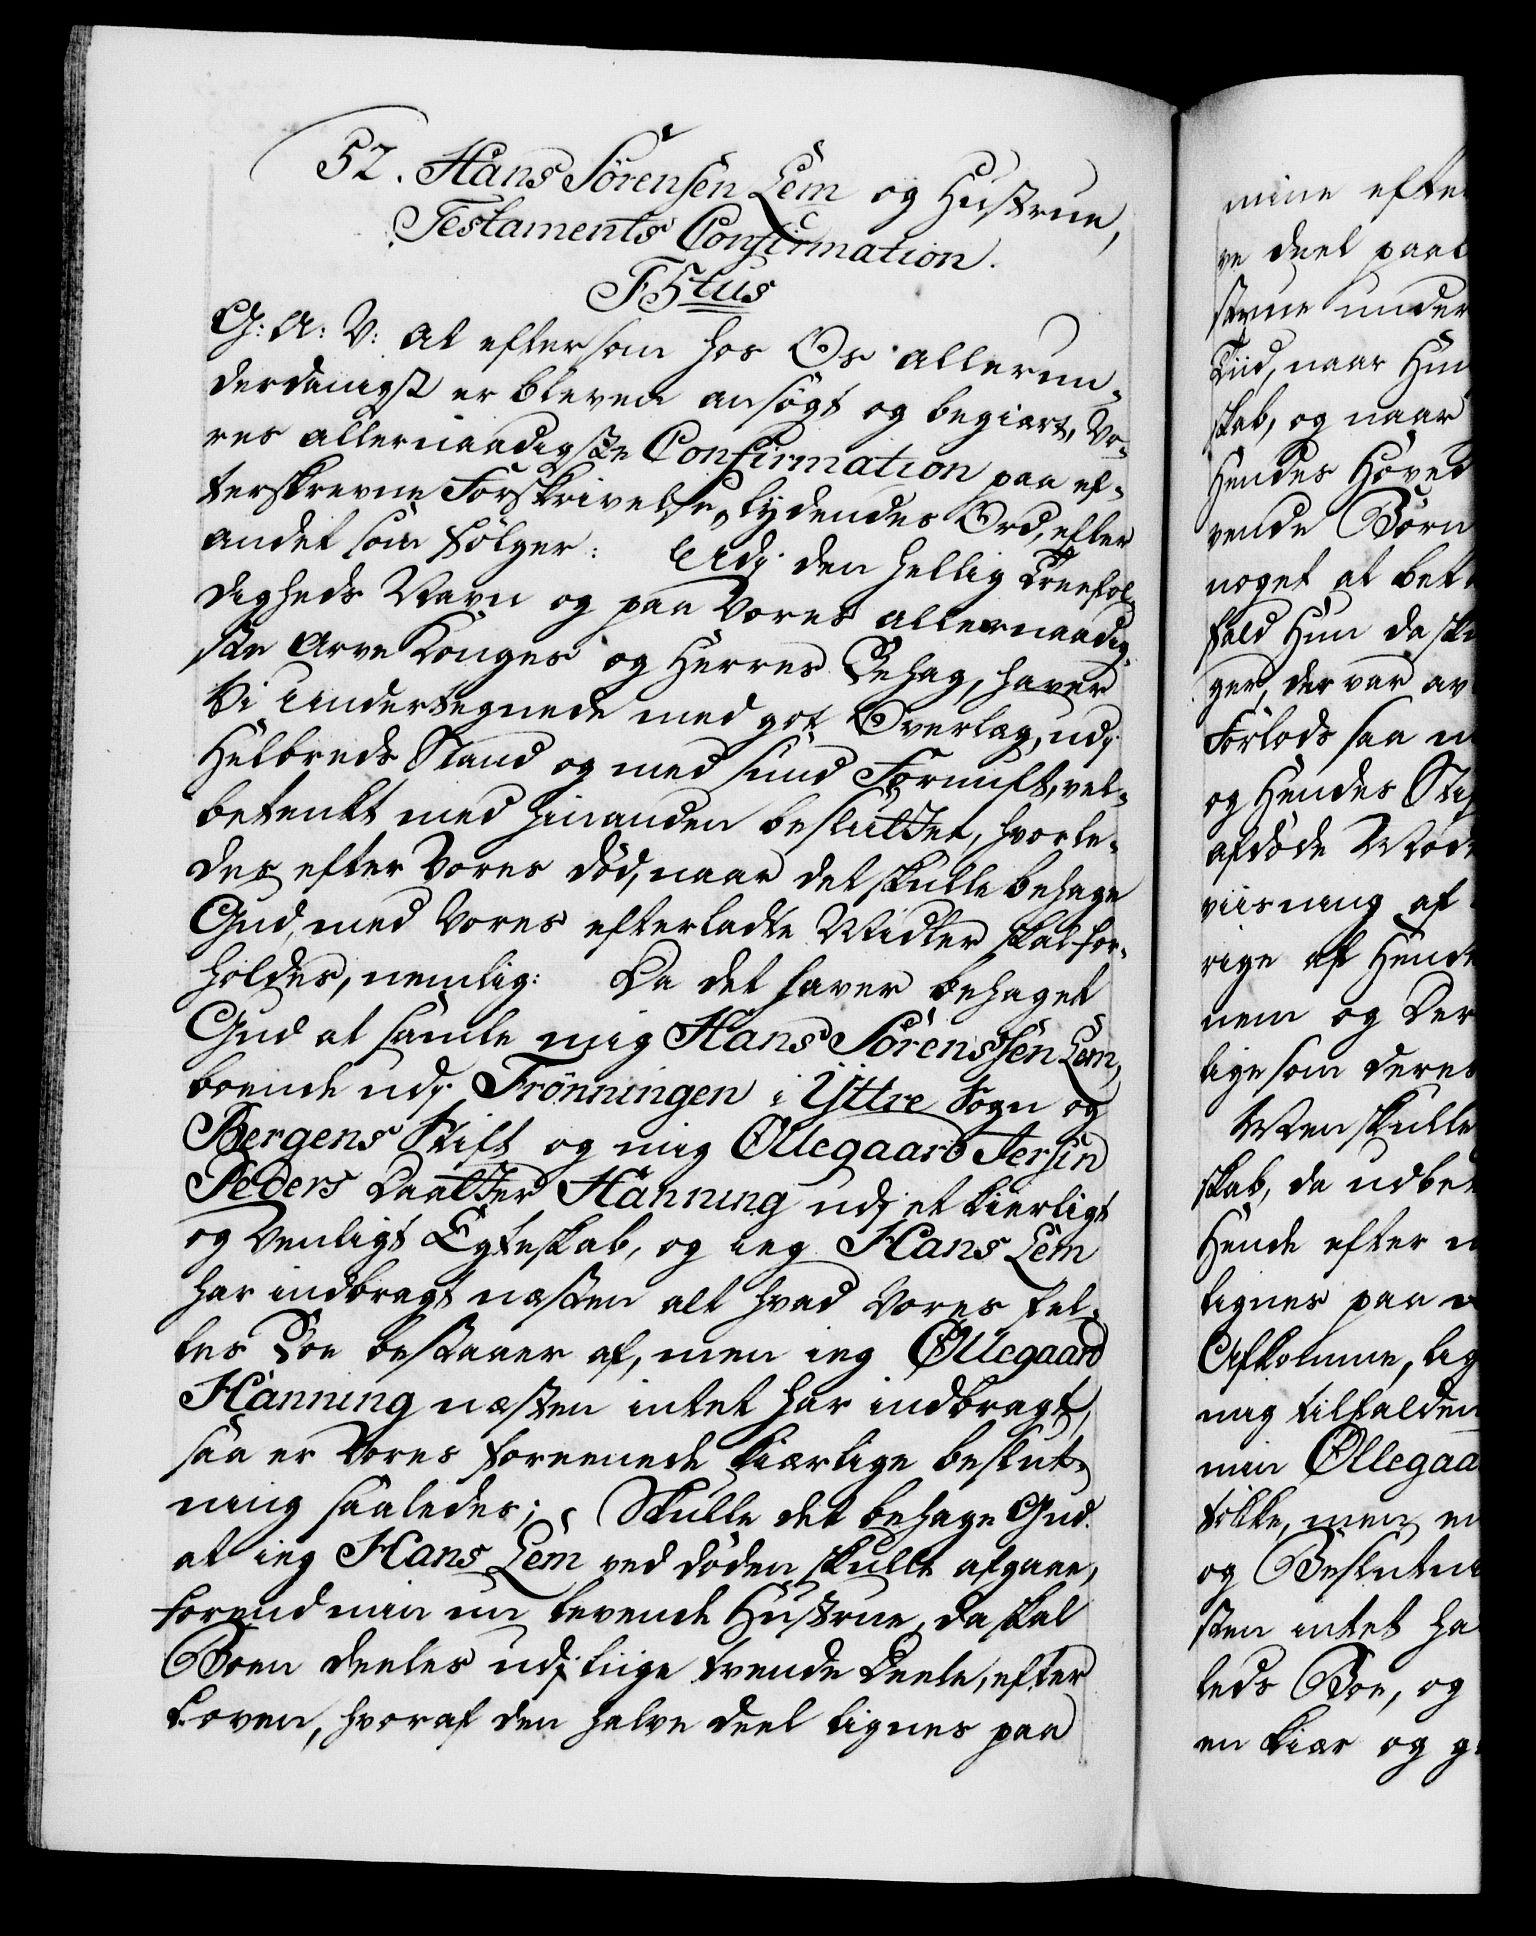 52. Hans Sörensen Lem og Hustrue,
Testaments Confirmation.
F5tus
G: A: V: at eftersom hos Os allerun-
derdanigst er bleven ansögt og begiært, Vo-
res allernaadigste Confirmation paa ef-
terskrevne Forskrivelse, lydendes Ord, efter
andet som fölger: Udj den hellig Treefol-
digheds Navn og paa Vores allernaadig-
ste Arve Konges og Herres Behag, haver
Vi Undertegnede med got Overlæg, udj
Helbreds Stand og med sund Fornuft, vel-
betenkt med hinanden besluttet, hvorle-
des efter Vores död, naar det skulle behage
Gud, med Vores efterladte Midler skal for-
holdes, nemlig: Da det haver behaget
Gud at samle mig Hans Sörenssen Lem,
boende udj Frönningen i Yttre Sogn og
Bergens Stift og mig Øllegaard Jersin
Peders Daatter Hanning udj et kierligt
og Venligt Egteskab, og ieg Hans Lem
har indbragt næsten alt hvad Vores fel-
les Boe bestaaer af, men ieg Øllegaard
Hanning næsten intet har indbragt,
saa er Vores foreenede kiærlige beslut-
ning saaledes; Skulle det behage Gud
at ieg Hans Lem ved döden skulle afgaae,
forend min nu levende Hustrue, da skal
Boen deeles udj liige tvende Deele, efter
Loven, hvoraf den halve deel lignes paa
mine efter
ve deel paal
strue under
Tiid, naar Hun
skab, og naar
Hendes Hoved
vende Börn
noget at bet
fald Hun da sk
ger, der var av
Forlods saa
og Hendes Stif
afdöde Mod
viisning af
rige af Hende
nem og Der
lige som deres
Men skulle
skab, da udbe
Hende efter
lignes paa
Afkomme, lig
mig tilfalden
min Øllegaa
fölke, men
og Beslutni
sten intet ha
leds Boe, og
en kiær og g